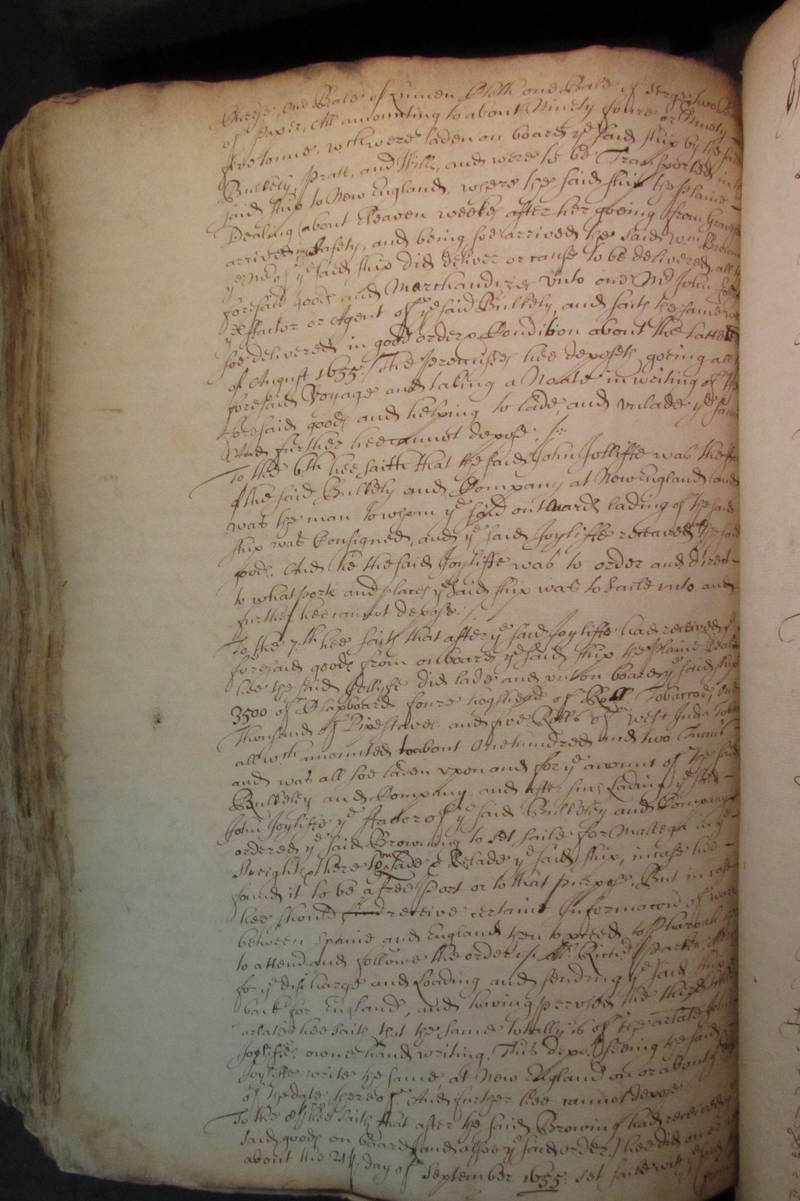 Cheese, one Bale of Linnen Cloth one Bale of Serges two
of paper, All amounting to about Ninety foure or Ninety
five tonne, wch were laden on board ye said ship by the said
Bulkely, Pratt, and Hill, and were to be Transported in the
said ship to New England, where the said ship the
Dealing about Eleaven weekes after her goeing from
arrived in safety, and being soe arrived the said Wm Browning
ye Mr of ye said ship did deliver or cause to be delivered all ye
foresaid goods and Merchandizes unto one Mr John
ye ffactor or Agent of ye said Bulkely, and saith the same
soe delivered in good order & Condition about the latter
of August 1655. / The premisses hee deposeth goeing all
foresaid Voyage and taking a Noate in writing of the
foresaid goods and helping to lade, and unlade ye same
And further hee cannot depose. /
To the 6th hee saith that the said John Jolliffe was the
of the said Bulkely and Company at New England and
was the man to whom ye said outwards lading of the said
ship was Consigned, and ye said Joyliffe receaved the said
goods. And he the said Joyliffe was to order and direct
to what ports and places ye said ship was to saile unto and
further hee cannot depose. /
To the 7th hee saith that after ye said Joyliffe had received ye
foresaid goods from on board ye said ship the
hee the said Jolliffe did lade and put on board ye said ship
3500 of Clapboard foure hogsheads of Roll Tobaccoe
Thousand of Pipestaves and five Rolls of West India
all wch amounted to about One hundred and two Tonnes
and was all soe laden upon and for ye account of the said
Bulkeley and Company, and after such Lading ye said
John Joyliffe ye ffactor of ye said Bulkeley and Company
ordered ye said Browning to set saile for Mallega in ye
Streights there to unlade & Relade ye said ship, in case hee
found it to be a free Port or to that purpose, But in case
hee should receive certaine Informacon of warr
between Spaine and England then to proceed to
to attend and followe the order of Mr Richd Parker
for ye discharge and Loading and sending ye said ship
back for England, and having perused the
arlate hee saith that the same totally is of the arlate
Joyliffes owne hand writing. This depot seeing the said
Joyliffe write the same at New England on or about ye
of the date thereof And further hee cannot depose
To the 8th hee saith that after the said Browning had received
said goods on board and alsoe ye said order hee did on or
about the 24th day of September 1655 set saile with ye said